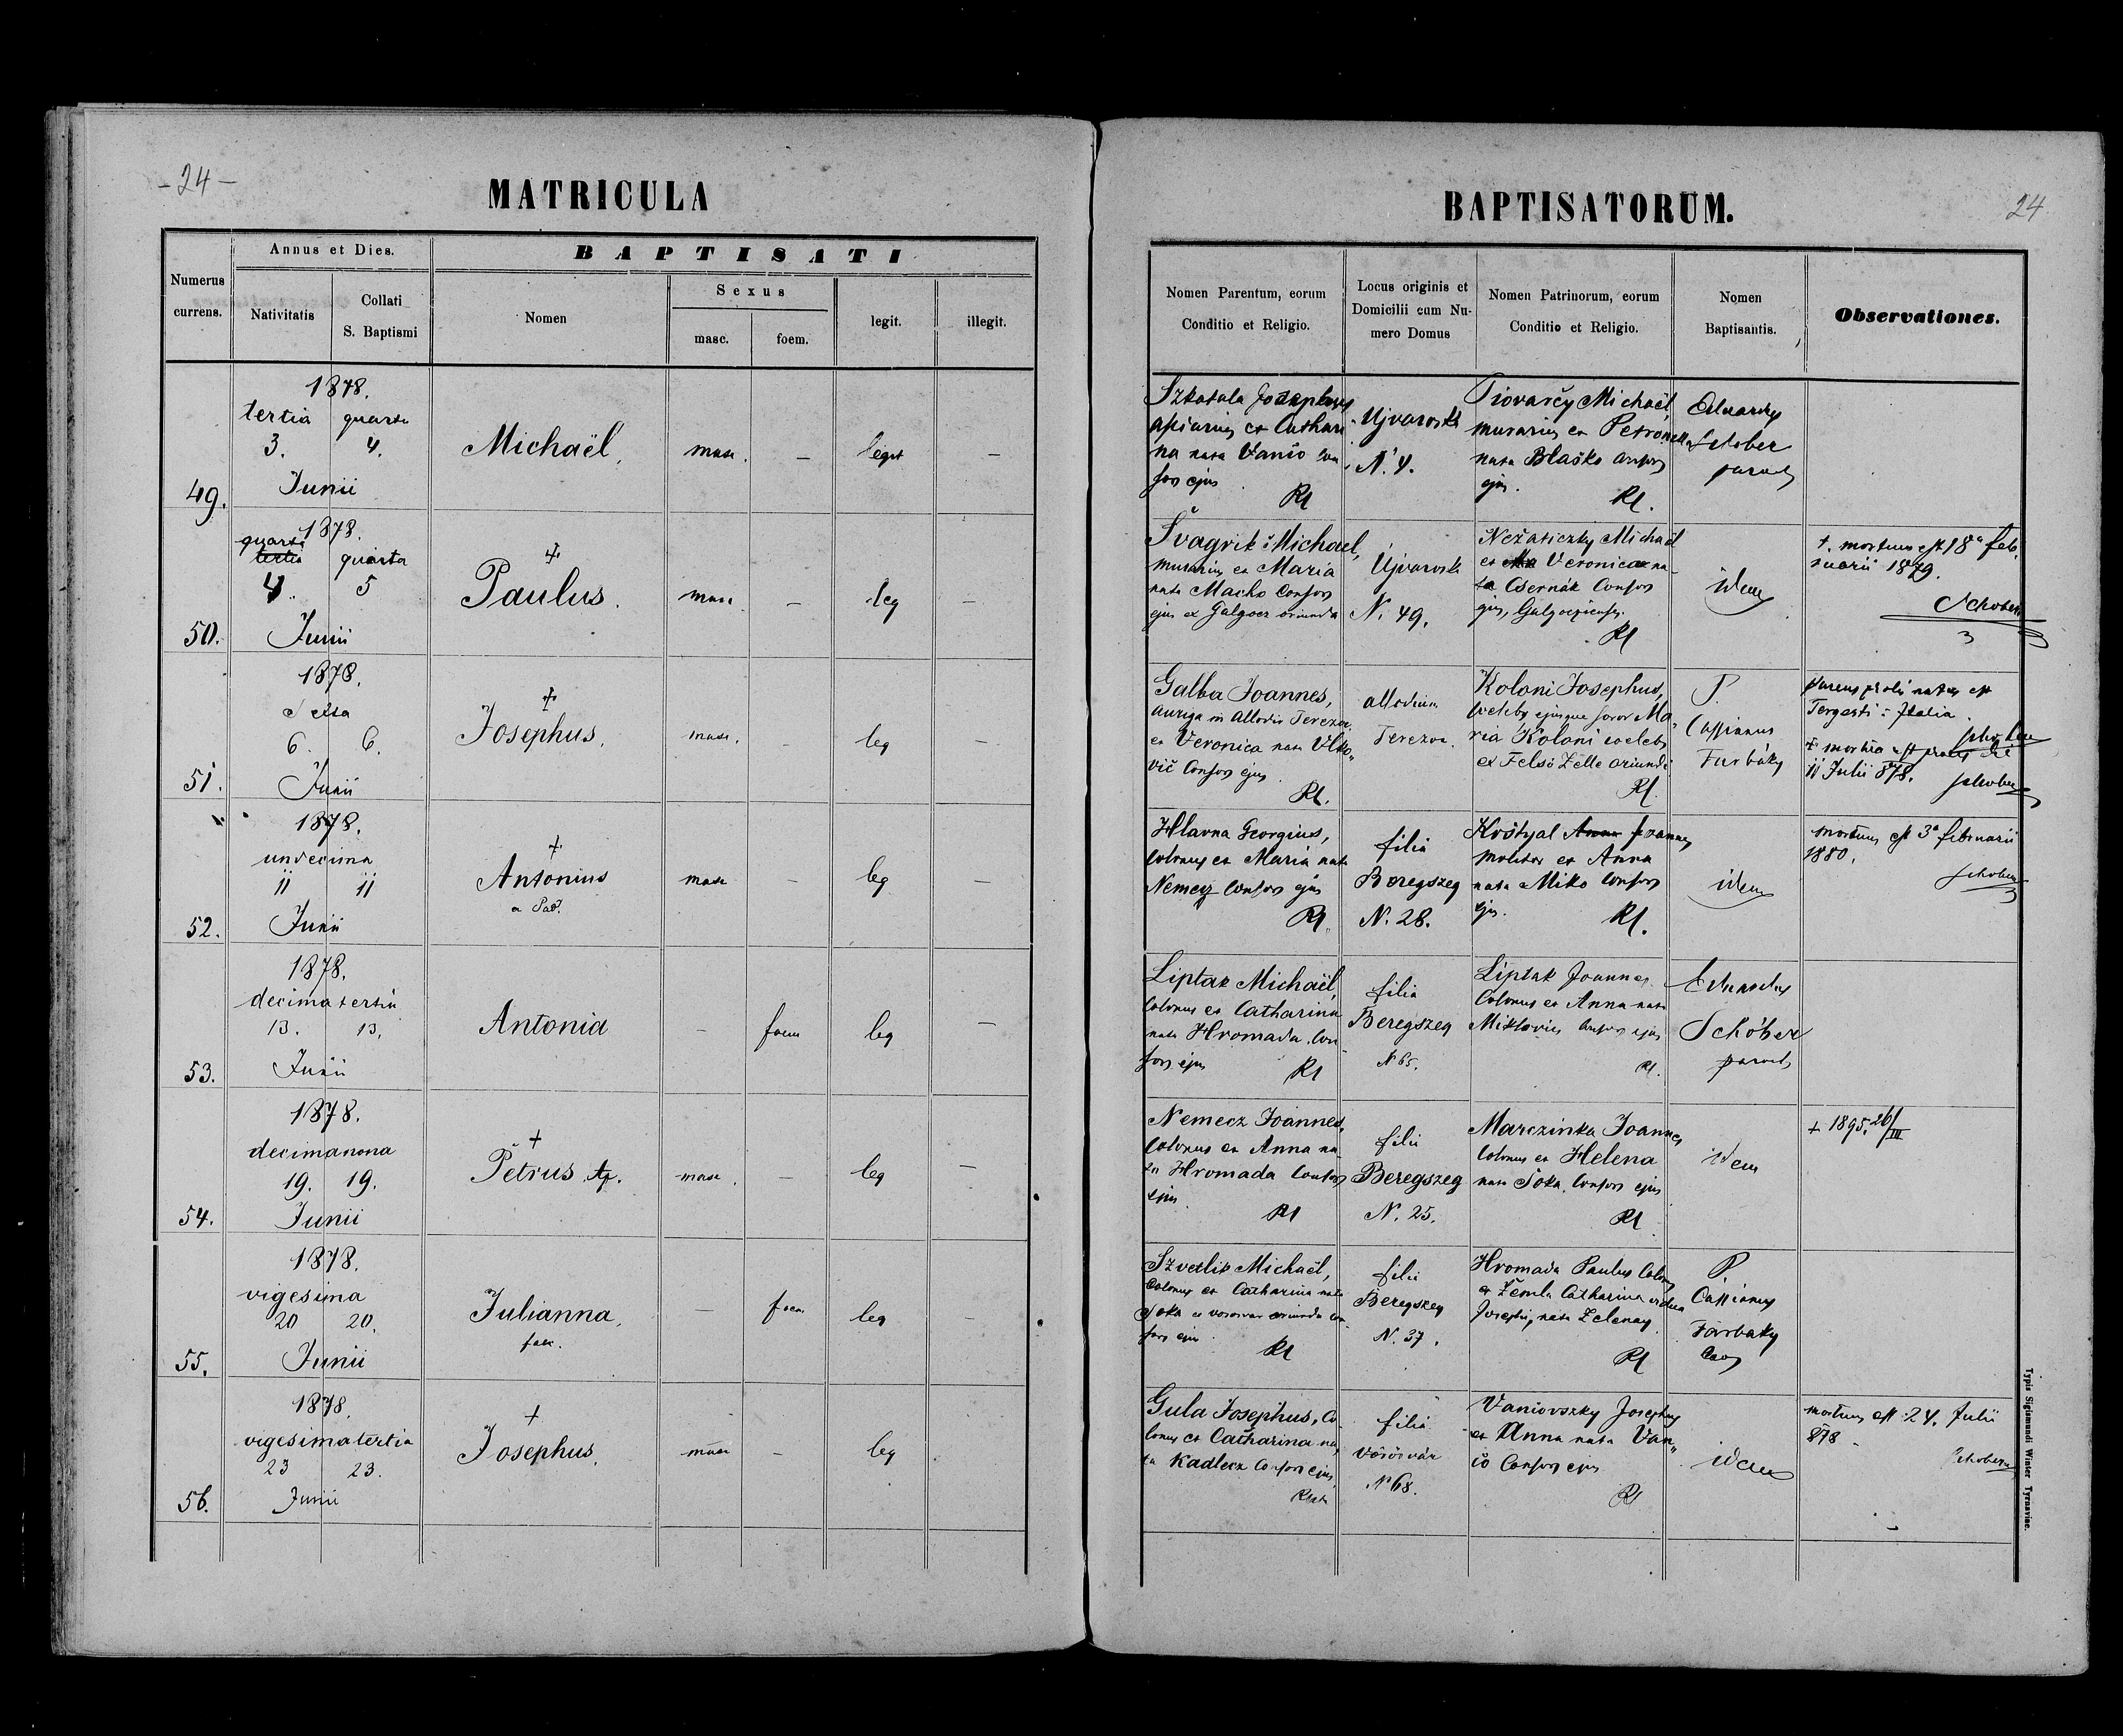 - 24 -
MATRICULA
Numerus currens.
Annus et Dies.
Nativitatis
Collati S. Baptismi
BAPTISATI
Nomen
Sexus
masc.
foem.
legit.
illegit.
49.
1878.
tertia quarta
3. 4.
Junii
Michaël,
masc. — legit —
50.
1878.
quarta
tertia quinta
4. 5
Junii
Paulus.
masc — leg —
51.
1878.
Sexta
6. 6.
Junii
Josephus.
masc. — leg —
52.
1878.
undecima
11 11
Junii
Antonius
a Pad.
masc — leg —
53.
1878.
decima tertia
13. 13.
Junii
Antonia
— foem leg —
54.
1878.
decimanona
19. 19.
Junii
Petrus Ap.
masc. — leg —
55.
1878.
vigesima
20 20.
Junii
Julianna,
falc.
— foem leg —
56.
1878.
vigesimatertia
23 23.
Junii
Josephus.
masc — leg
BAPTISATORUM.
24
Nomen Parentum, eorum
Conditio et Religio.
Locus originis et
Domicilii cum Nu-
mero Domus
Nomen Patrinorum, eorum
Conditio et Religio.
Nomen
Baptisantis.
Observationes.
Szkatula Josephus
apiarius et Cathari
na nata Vanio con
sors ejus
RC
Ujvaroska
N. 4.
Piovarčy Michaël,
murarius et Petronella
nata Blaško consors
ejus.
RC.
Eduardus
Schober
paroch
Švagrik Michael,
murarius et Maria
nata Macho Consors
ejus ex Galgocz oriunda
Ujvaroska
N. 49.
Nežaticzky Michaël
et Veronica na-
ta Csernák Consors
ejus, Galgocziensis.
RC
idem
†. mortuus est 18a feb.
ruarii 1879.
Schober
Galba Joannes,
auriga in Allodio Terezov.
et Veronica nata Vlko„
vič Consors ejus.
RC.
allodium
Terezov.
Koloni Josephus,
coelebs ejusque soror Ma„
ria Koloni coelebs
ex Felső Zelle oriundi
RC.
P.
Cassianus
Farbáky
parens prolis natus est
Tergesti: Italia.
Schober
† mortua est proles die
11 Julii 878.
Schober
Hlavna Georgius,
Colonus et Maria nata
Nemecz Consors ejus
RC.
filia
Beregszeg
N. 28.
Koštyal Anna Joannes
molitor et Anna
nata Miko Consors
ejus.
RC.
idem
mortuus est 3a februarii
1880.
Schober
Liptak Michaël,
Colonus et Catharina
nata Hromada Con
sors ejus
RC
filia
Beregszeg
N 65.
Liptak Joannes
Colonus et Anna nata
Consors ejus
RC.
Eduardus
Schóber
paroch
Nemecz Joannes,
Colonus et Anna na
ta Hromada Consors
ejus.
RC
filia
Beregszeg
N. 25.
Marczinka Joannes
Colonus et Helena
nata Soka, Consors ejus
RC
idem
+ 1895. 26/III
Szvetlik Michaël,
Colonus et Catharina nata
Soka e vorosvar oriunda con
sors ejus
RC
filia
Beregszeg
N. 37.
Hromada Paulus Colonus
et Žemla Catharina vidua
Josephi, nata Zelenay
RC
P.
Cassianus
Farbaky
Gula Josephus, Co
lonus et Catharina na„
ta Kadlecz Consors ejus
filia
Vörösvár
N 68.
Vaniovszky Josephus
et Anna nata Van„
io Consors ejus
RC
idem
mortuus est 24. Julii
878.
Schober
Typis Sigismundi Winter Tyrnaviae.